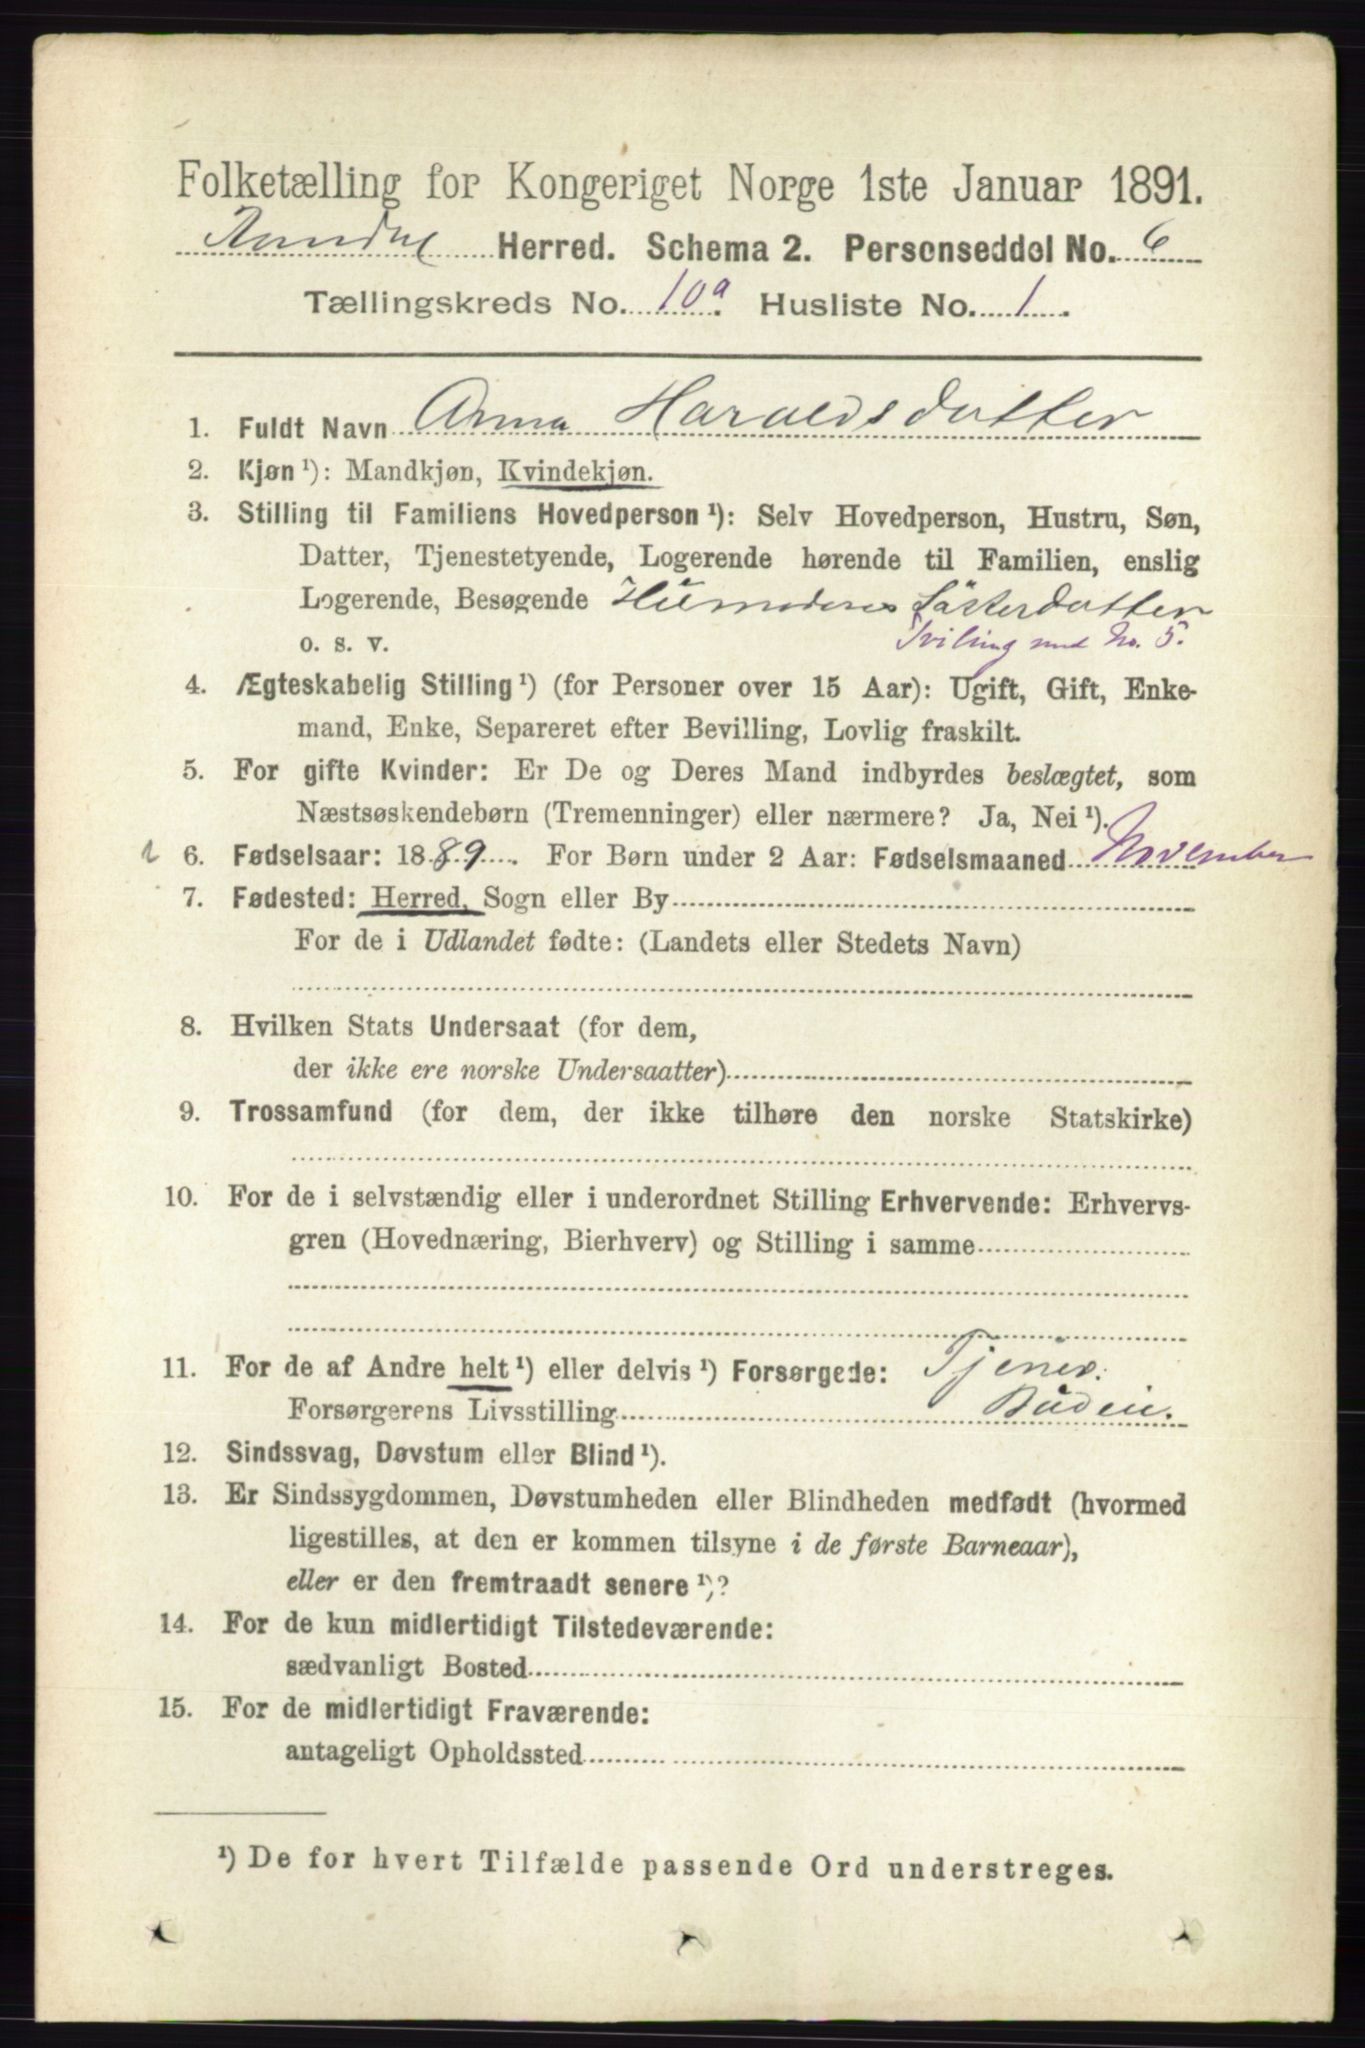 Folketælling for Kongeriget Norge 1ste Januar 1891.
Herred. Schema 2. Personseddel No. 6
Tællingskreds No. 10a. Husliste No. 1.
1. Fuldt Navn Anna Haraldsdatter
2. Kjøn ¹): Mandkjøn, Kvindekjøn.
3. Stilling til Familiens Hovedperson ¹): Selv Hovedperson, Hustru, Søn,
Datter, Tjenestetyende, Logerende hørende til Familien, enslig
Logerende, Besøgende Søsterdatter
o. s. v. Tvilling med No. 5.
4. Ægteskabelig Stilling ¹) (for Personer over 15 Aar): Ugift, Gift, Enke-
mand, Enke, Separeret efter Bevilling, Lovlig fraskilt.
5. For gifte Kvinder: Er De og Deres Mand indbyrdes beslægtet, som
Næstsøskendebørn (Tremenninger) eller nærmere? Ja, Nei ¹).
6. Fødselsaar: 1889. For Børn under 2 Aar: Fødselsmaaned November
7. Fødested: Herred, Sogn eller By
For de i Udlandet fødte: (Landets eller Stedets Navn)
8. Hvilken Stats Undersaat (for dem,
der ikke ere norske Undersaatter)
9. Trossamfund (for dem, der ikke tilhøre den norske Statskirke)
10. For de i selvstændig eller i underordnet Stilling Erhvervende: Erhvervs-
gren (Hovednæring, Bierhverv) og Stilling i samme
11. For de af Andre helt ¹) eller delvis ¹) Forsørgede: Tjener.
Forsørgerens Livsstilling Budeie.
12. Sindssvag, Døvstum eller Blind ¹).
13. Er Sindssygdommen, Døvstumheden eller Blindheden medfødt (hvormed
ligestilles, at den er kommen tilsyne i de første Barneaar),
eller er den fremtraadt senere ¹)?
14. For de kun midlertidigt Tilstedeværende:
sædvanligt Bosted
15. For de midlertidigt Fraværende:
antageligt Opholdssted
¹) De for hvert Tilfælde passende Ord understreges.